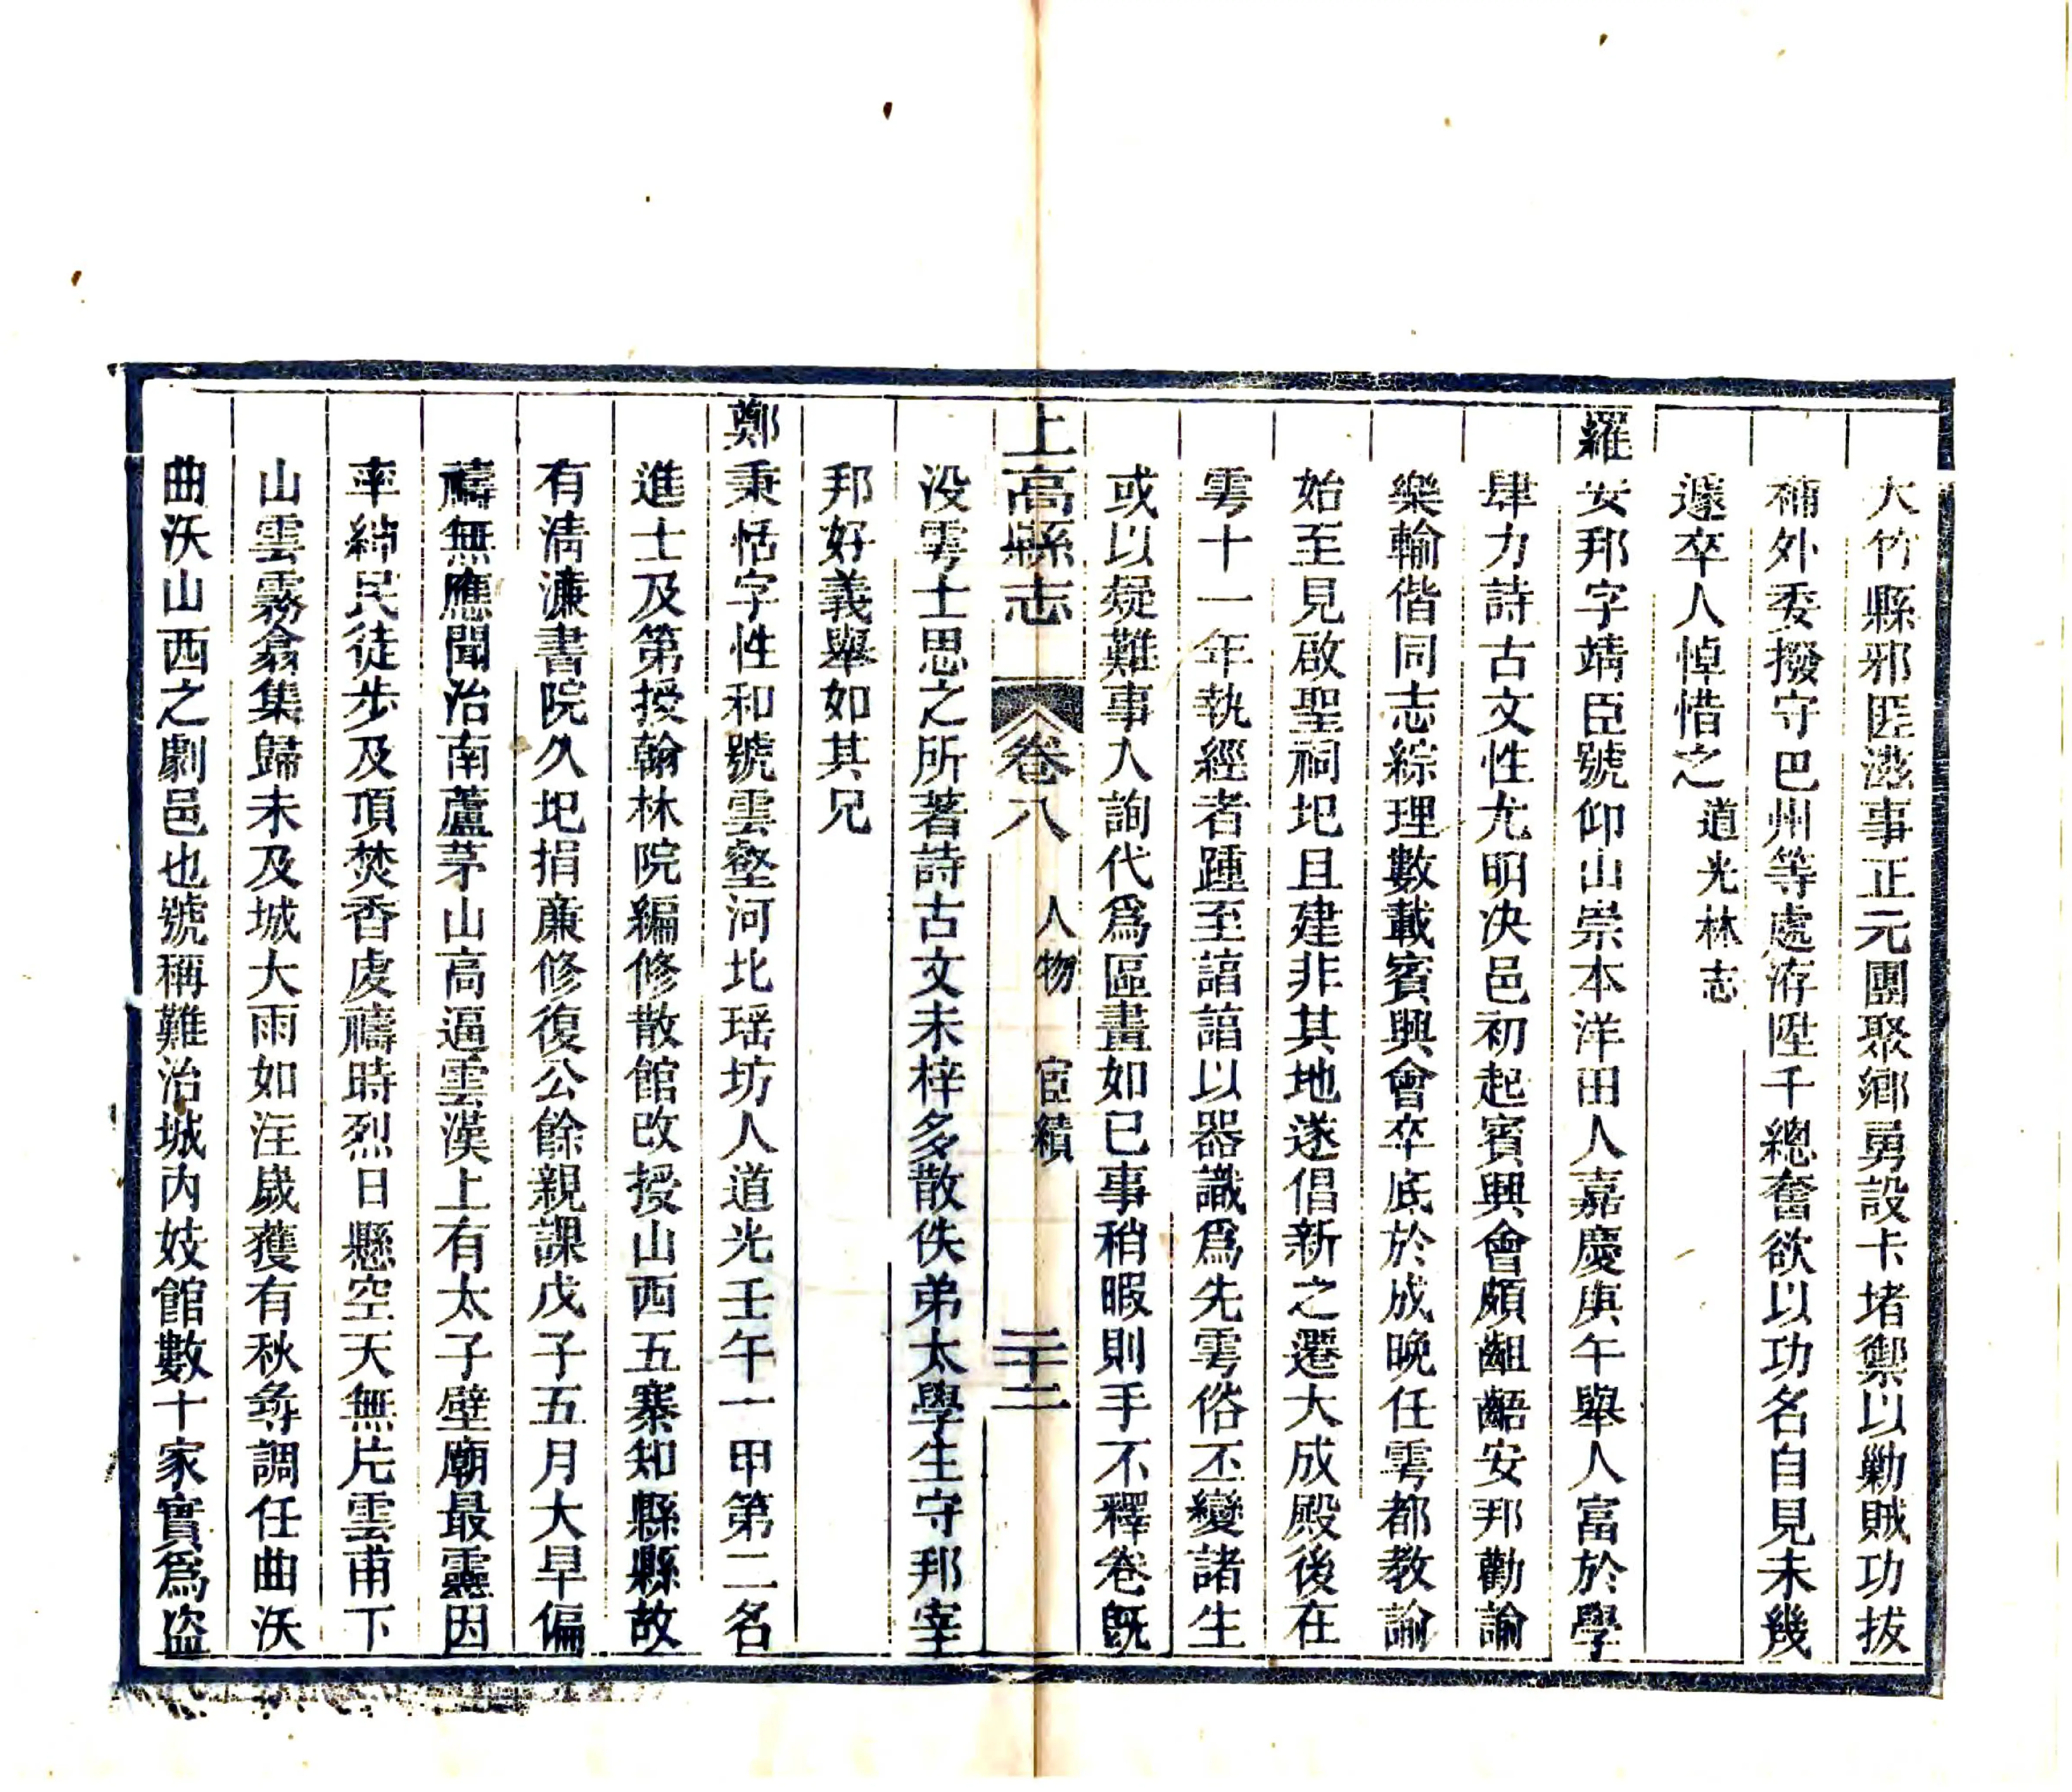 大竹縣邪匪滋事正元團聚鄉勇設卡堵禦以勦賊功拔
補外委撥守巴州等處洊陞千總奮欲以功名自見未幾
遽卒人悼惜之道光林志
羅安邦字靖臣號仰山崇本洋田人嘉慶庚午舉人富於學
肆力詩古文性尤明決邑初起賓興會頗齟齬安邦勸諭
樂輸偕同志綜理數載賓興會卒底於成晚任雩都教諭
始至見啟聖祠圯且建非其地遂倡新之遷大成殿後在
雩十一年執經者踵至諳諳以器識爲先雩俗丕變諸生
或以疑難事人詢代爲區畫如已事稍暇則手不釋卷既
上高縣志 卷八 人物 宦績 二十二
没雩士思之所著詩古文未梓多散佚弟太學生守邦宰
邦好義舉如其兄
鄭秉恬字性和號雲壑河北瑶坊人道光壬午一甲第二名
進士及第授翰林院編修散館改授山西五寨知縣縣故
有清濂書院久圯捐廉修復公餘親課戊子五月大旱偏
禱無應聞治南蘆茅山高逼雲漢上有太子壁廟最靈因
率紳民徒步及頂焚香虔禱時烈日懸空天無片雲甫下
山雲霧翕集歸未及城大雨如注歲獲有秋尋調任曲沃
曲沃山西之劇邑也號稱難治城内妓館數十家實爲盜